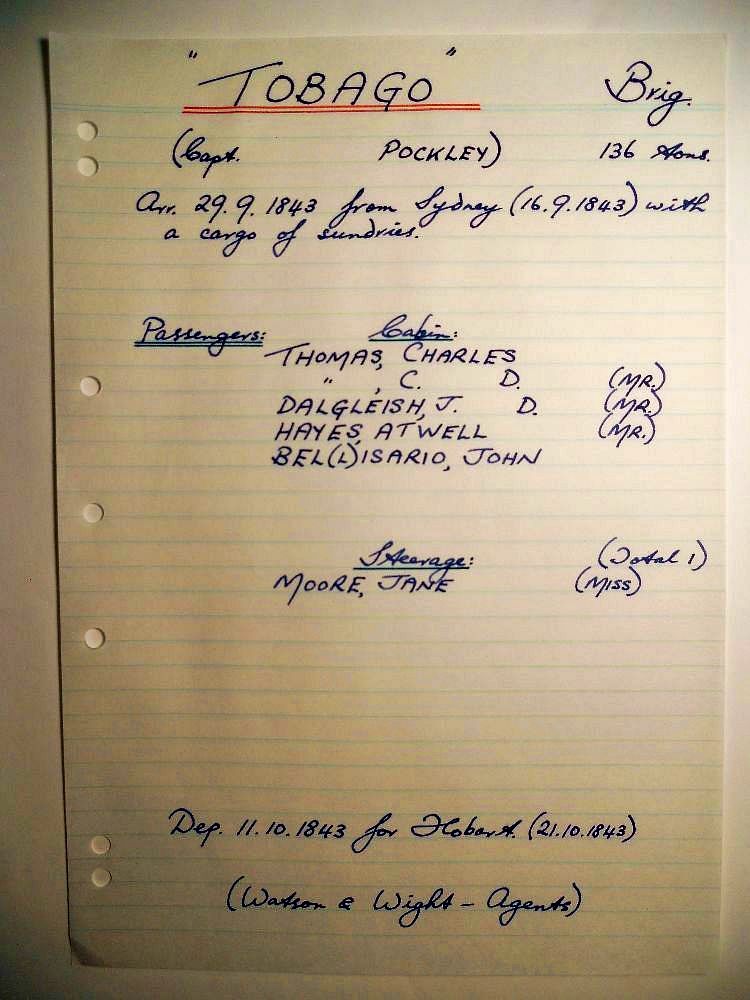 "TOBAGO" Brig.
(Capt. POCKLEY) 136 tons.
Arr. 29.9.1843 from Sydney (16.9.1843) with
a cargo of sundries.
Passengers: Cabin:
THOMAS, CHARLES
" , C. D. (MR.)
DALGLEISH, J. D. (MR.)
HAYES, ATWELL (MR.)
BEL(L)ISARIO, JOHN
Steerage: (Total 1)
MOORE, JANE (MISS)
Dep. 11.10.1843 for Hobart. (21.10.1843)
(Watson & Wight - Agents)